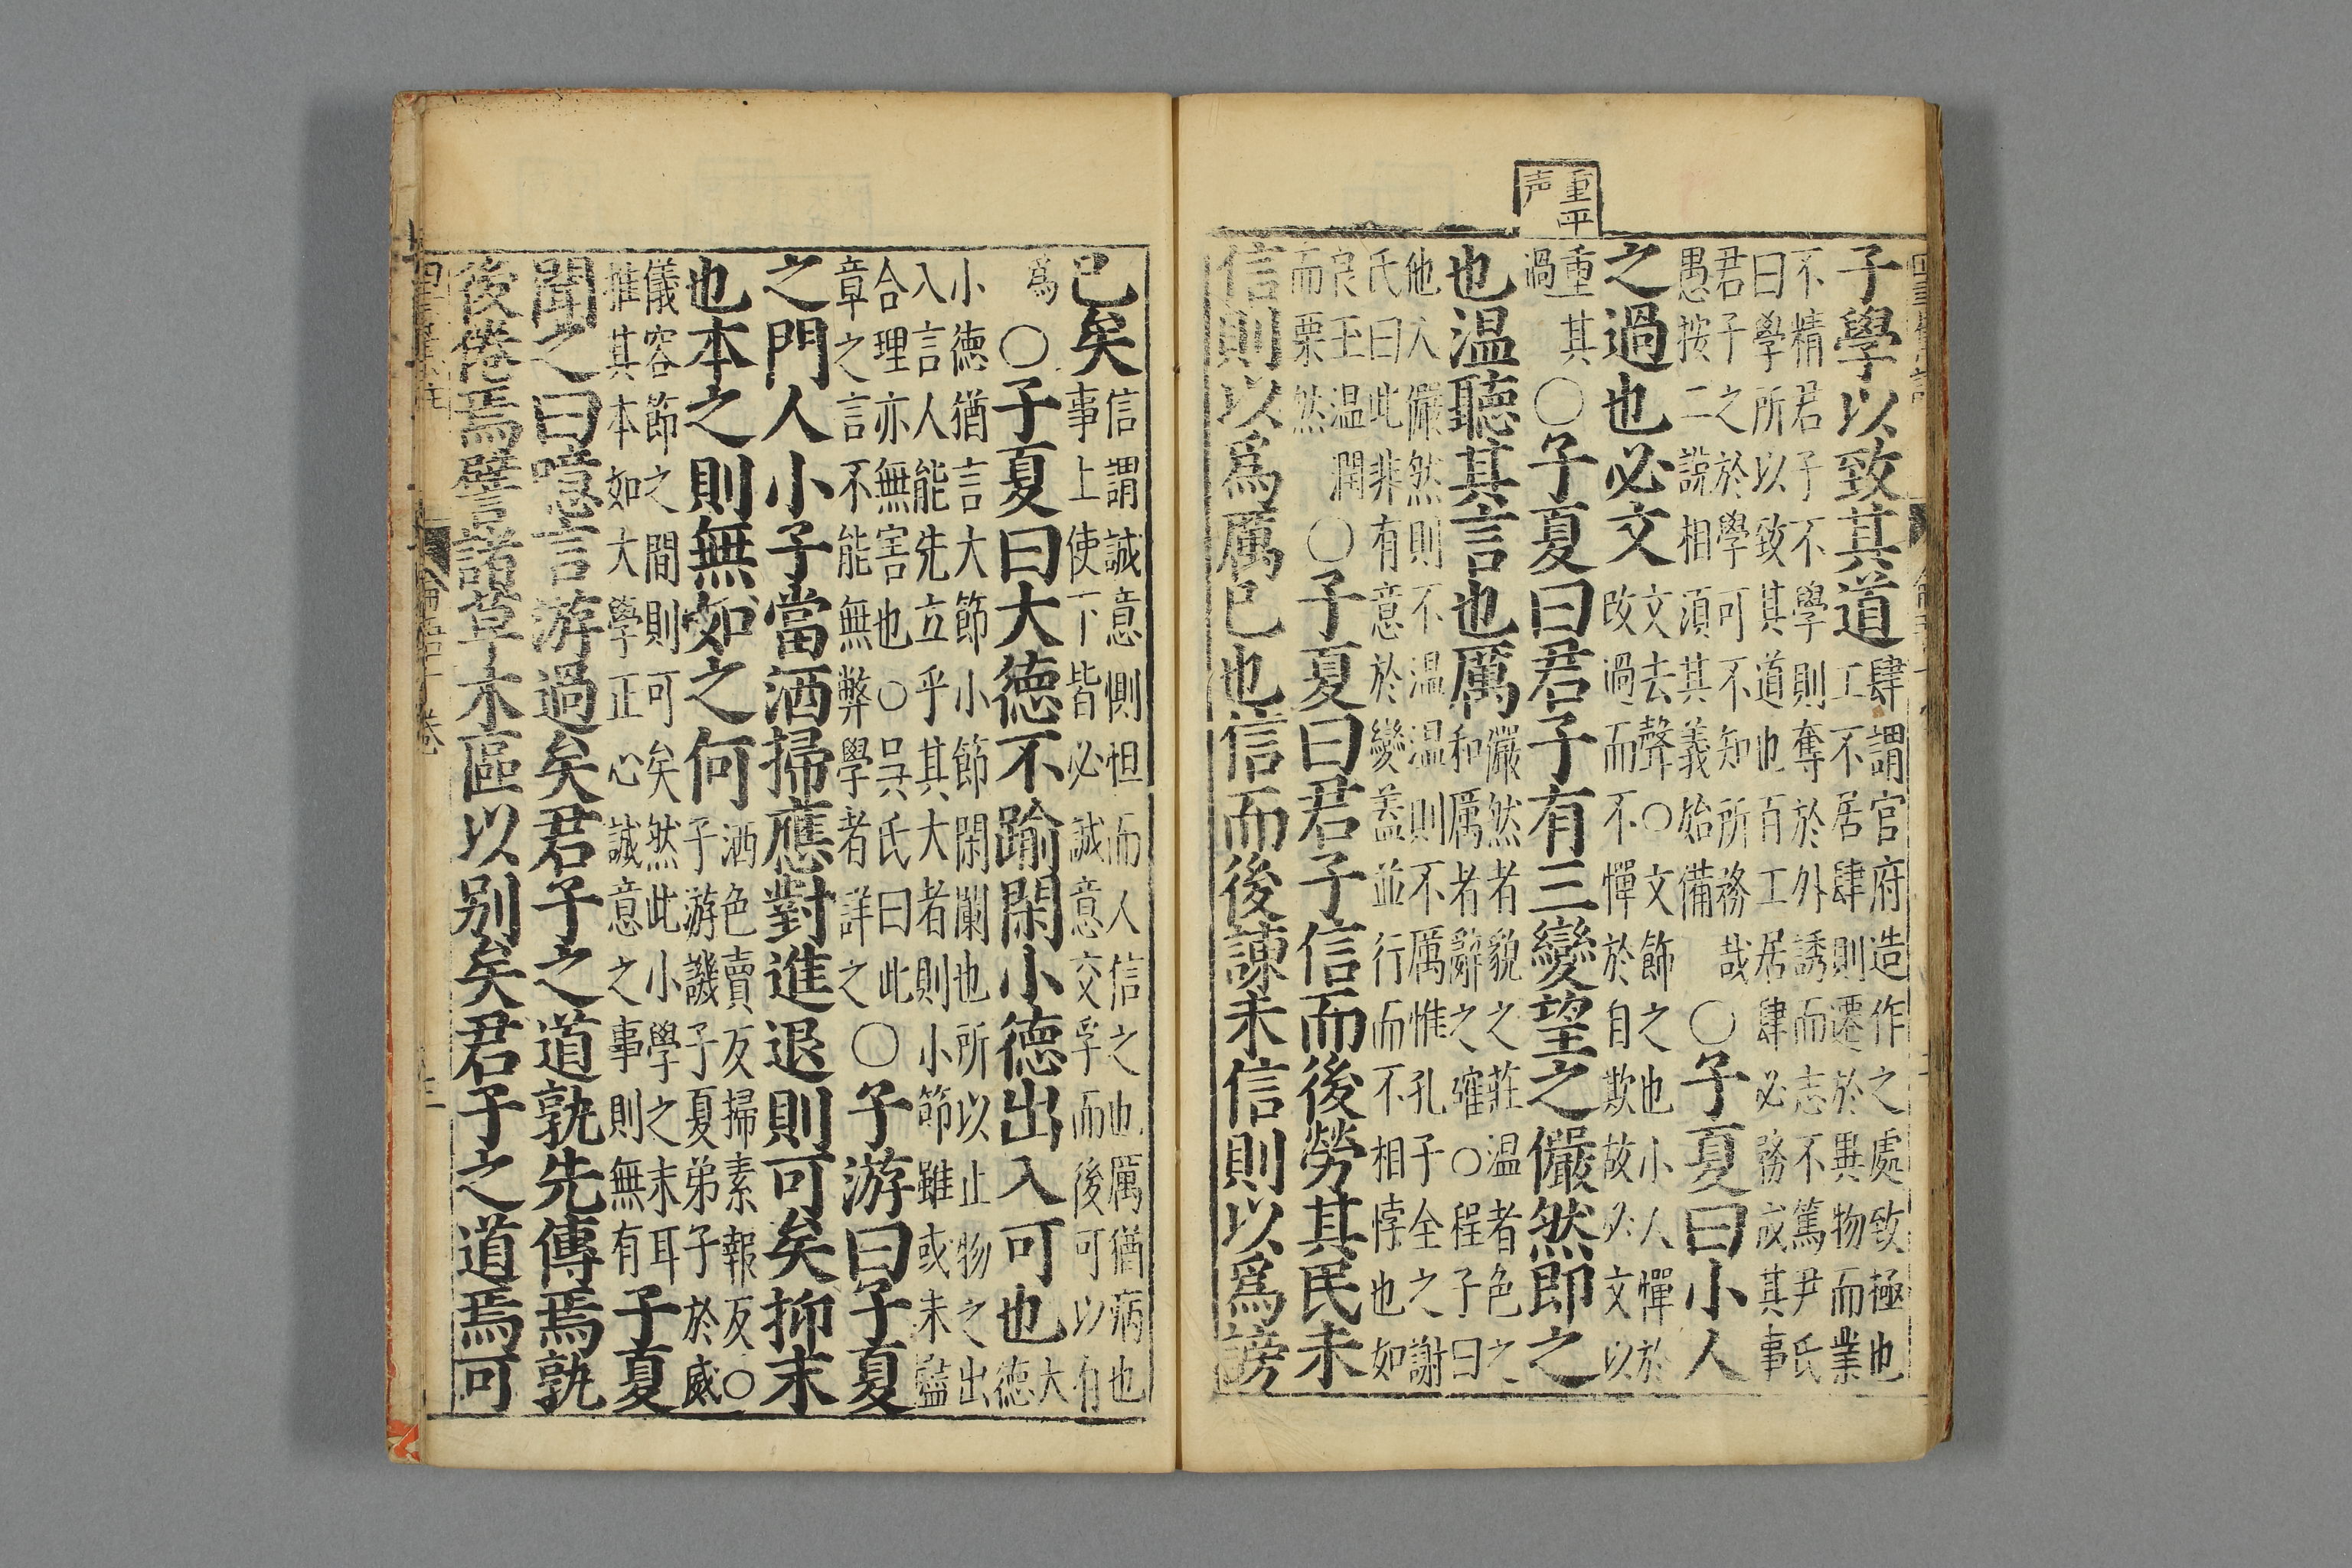 重平
声
子學以致其道肆謂官府造作之處致極也
工不居肆則遷於異物而業
不精君子不學則奪於外誘而志不篤尹氏
曰學所以致其道也百工居肆必務成其事
君子之於學可不知所務哉
愚按二說相須其義始備
○子夏曰小人
之過也必文文去聲○文飾之也小人憚於
改過而不憚於自欺故必文以
重其
過
○子夏曰君子有三變望之儼然即之
也温聽其言也厲儼然者貌之莊温者色之
和厲者辭之確○程子曰
他人儼然則不温温則不厲惟孔子全之謝
氏曰此非有意於變蓋並行而不相悖也如
良玉温潤
而栗然
○子夏曰君子信而後勞其民未
信則以爲厲已也信而後諫未信則以爲謗
已矣信謂誠意惻怛而人信之也厲猶病也
事上使下皆必誠意交孚而後可以有
爲
○子夏曰大德不踰閑小德出入可也大
德
小德猶言大節小節閑闌也所以止物之出
入言人能先立乎其大者則小節雖或未盡
合理亦無害也○吳氏曰此
章之言不能無弊學者詳之
○子游曰子夏
之門人小子當洒掃應對進退則可矣抑末
也本之則無如之何洒色賣反掃素報反○
子游譏子夏弟子於威
儀容節之間則可矣然此小學之末耳
推其本如大學正心誠意之事則無有
子夏
聞之曰噫言游過矣君子之道孰先傳焉孰
後倦焉譬諸草木區以别矣君子之道焉可